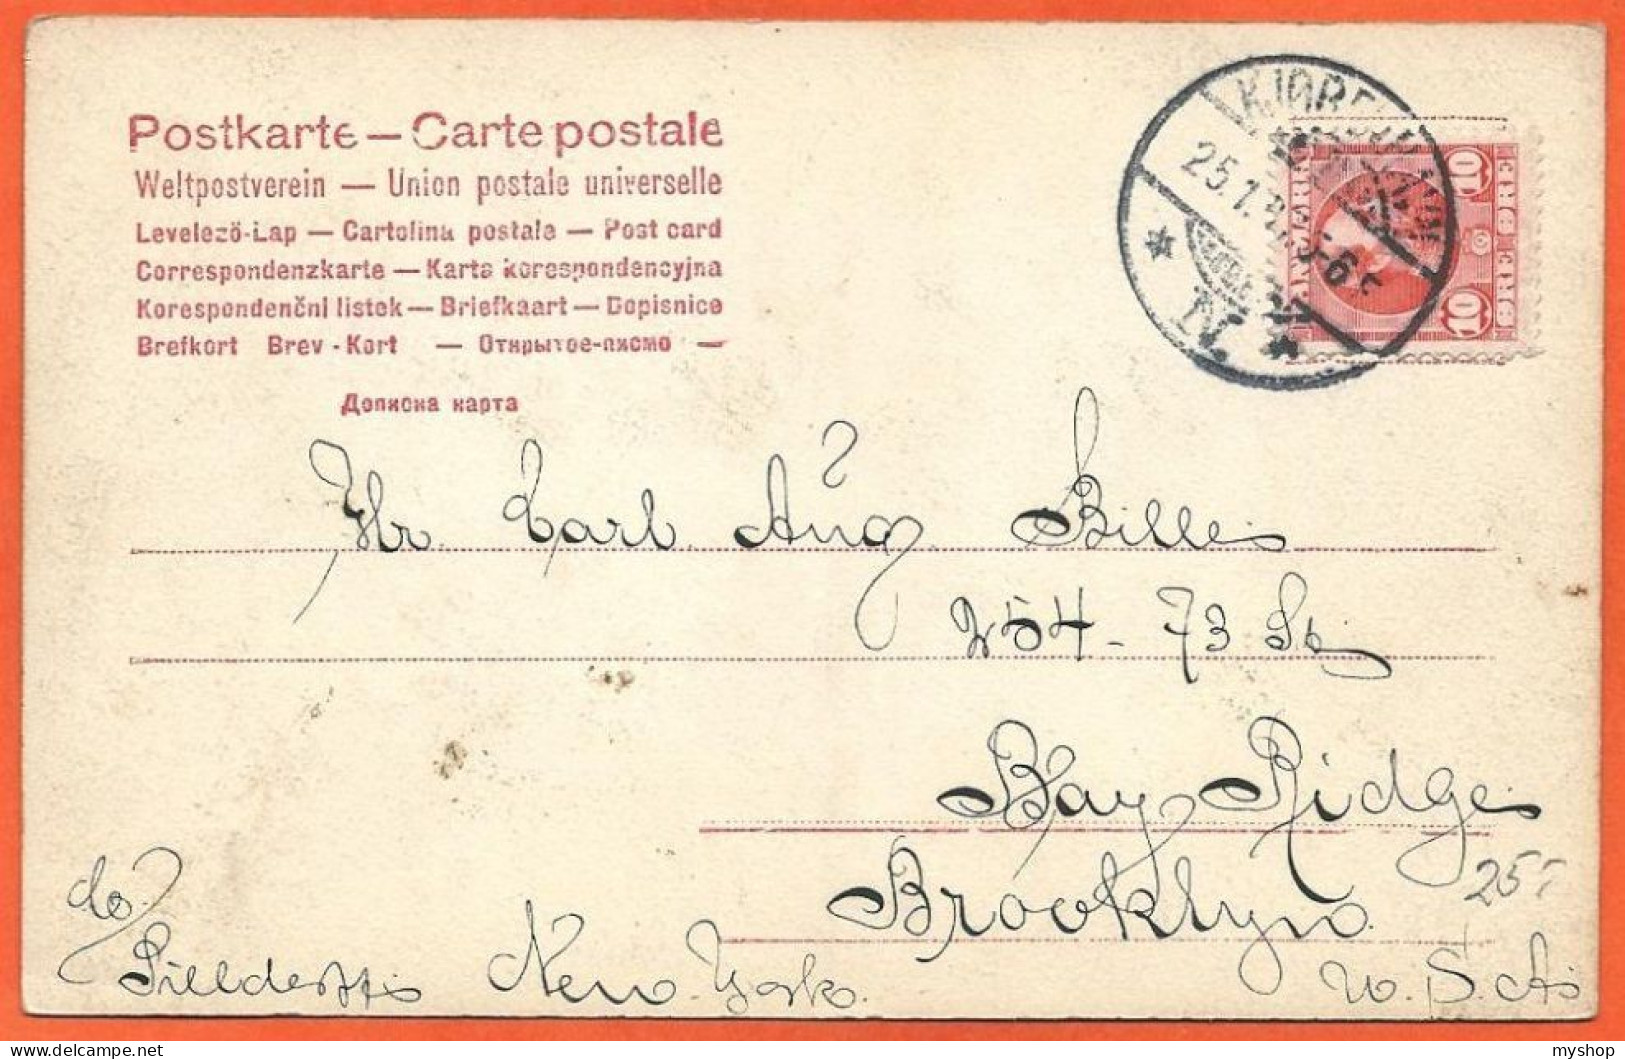 Postkarte — Carte postale
Weltpostverein — Union postale universelle
Levelező-Lap — Cartolina postale — Post card
Correspondenzkarte — Karta korespondencyjna
Korespondenční listek — Briefkaart — Dopisnice
Brefkort Brev-Kort — Открытое-писмо —
Дописна карта
25.1.
5-6
N.
DANMARK
10 10
ØRE ØRE
Hr. Carl. Aug. Billes
254-73 St
Bay Ridge
Brooklyn
25
New-York.
U.S.A
myshop